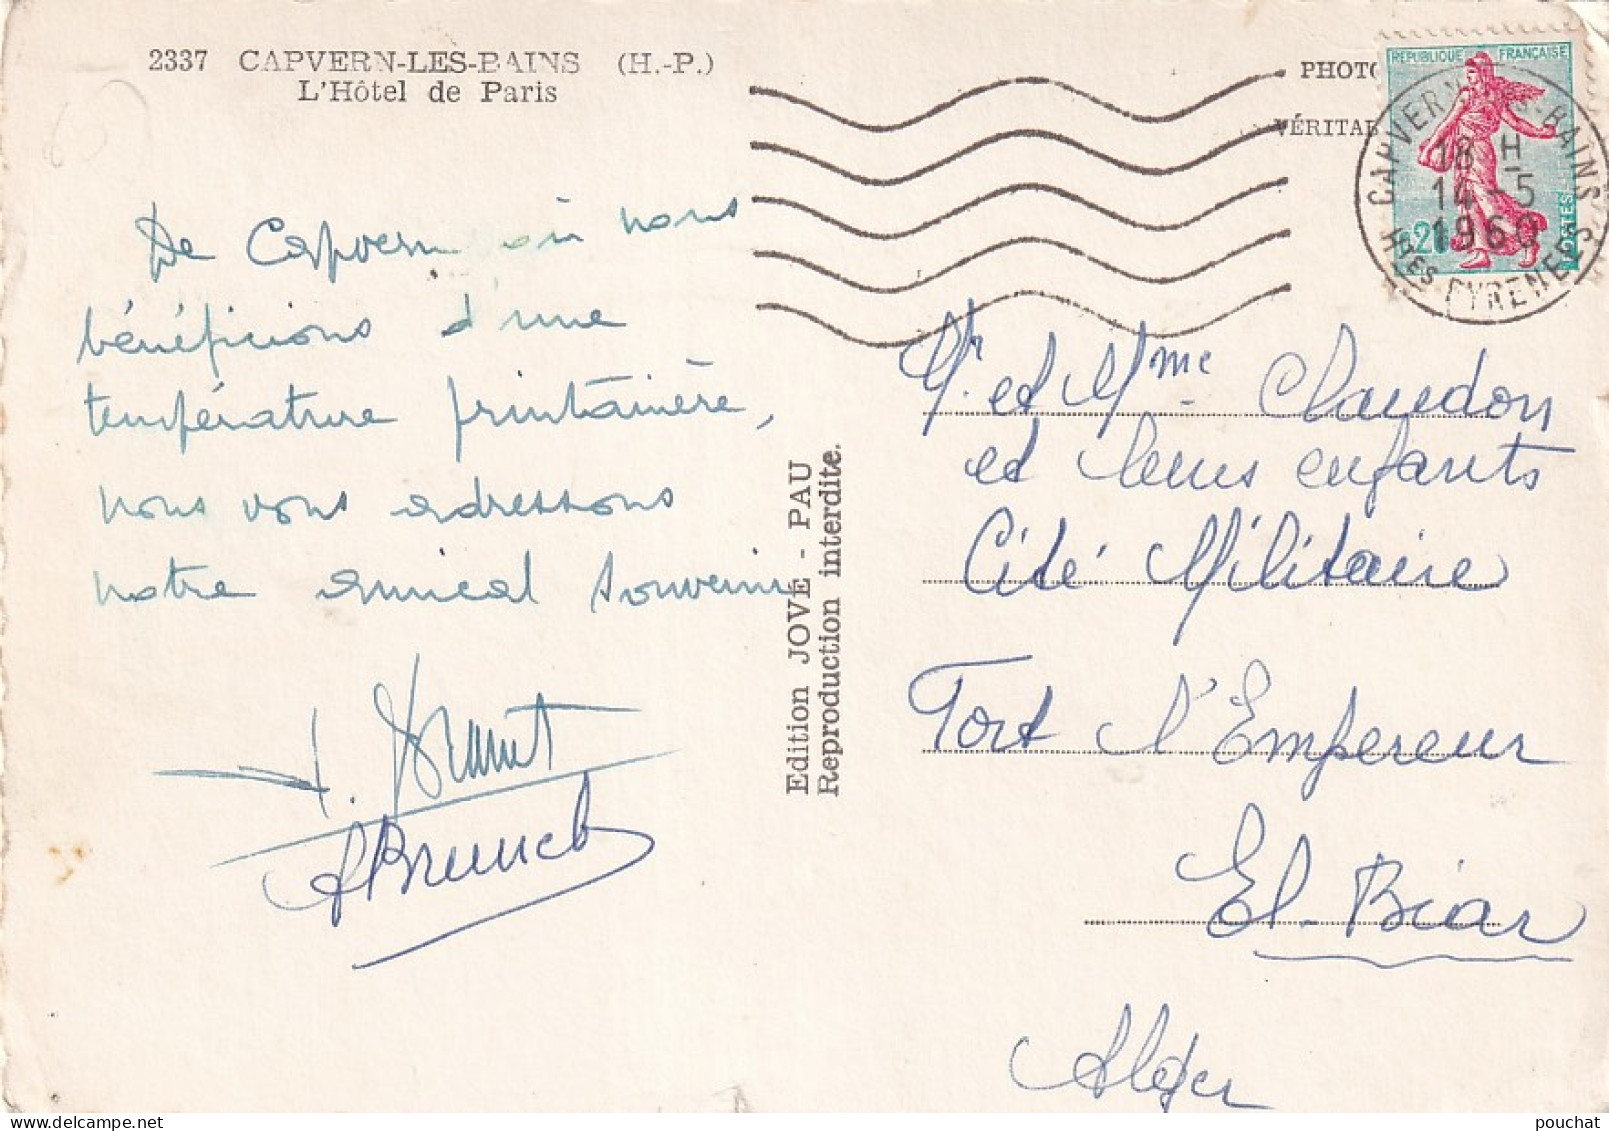 2337 CAPVERN-LES-BAINS (H.-P.)
L'Hôtel de Paris
De Capvern où nous
bénéficions d'une
température printanière,
nous vous adressons
notre amical souvenir
Edition JOVÉ - PAU
Reproduction interdite.
PHOTO
VÉRITAB
REPUBLIQUE FRANÇAISE
POSTES
CAPVERN BAINS
18 H
14 - 5
1960
HTES PYRENEES
Mr et Mme Claudon
et leurs enfants
Cité Militaire
Fort l'Empereur
El-Biar
Alger
pouchat